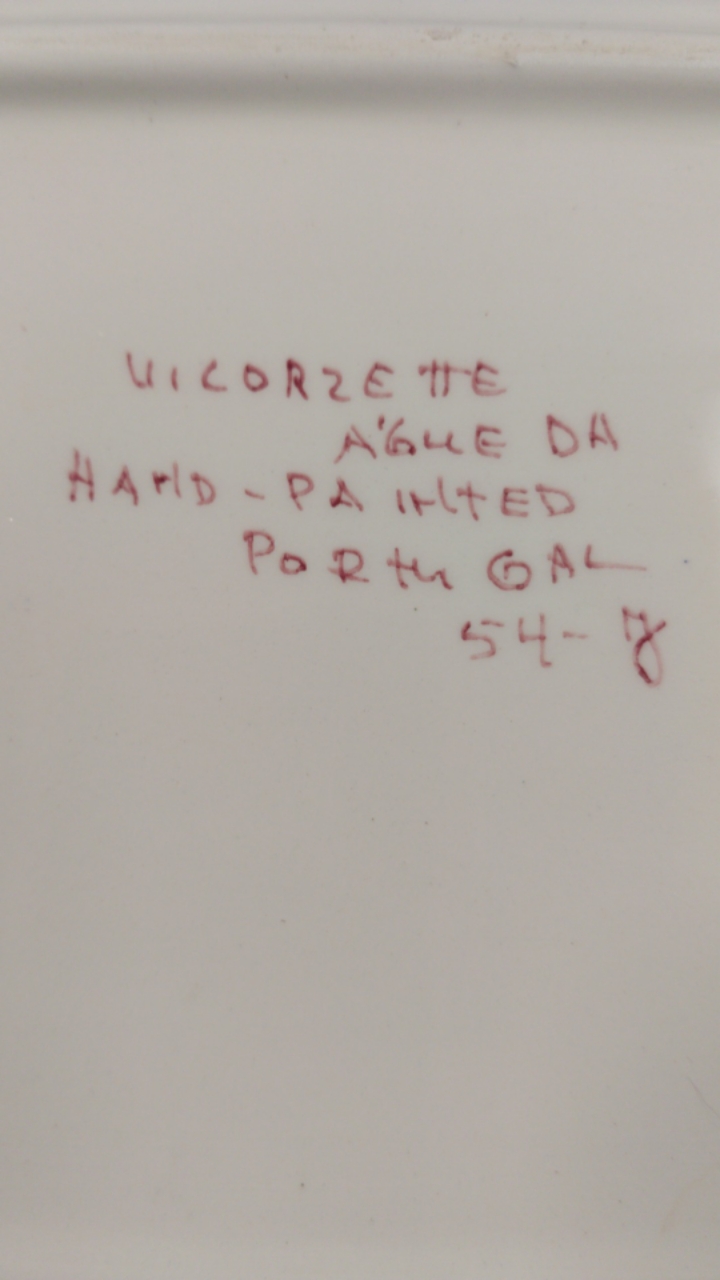 VICORZETTE
ÁGUEDA
HAND-PAINTED
PORTUGAL
54-